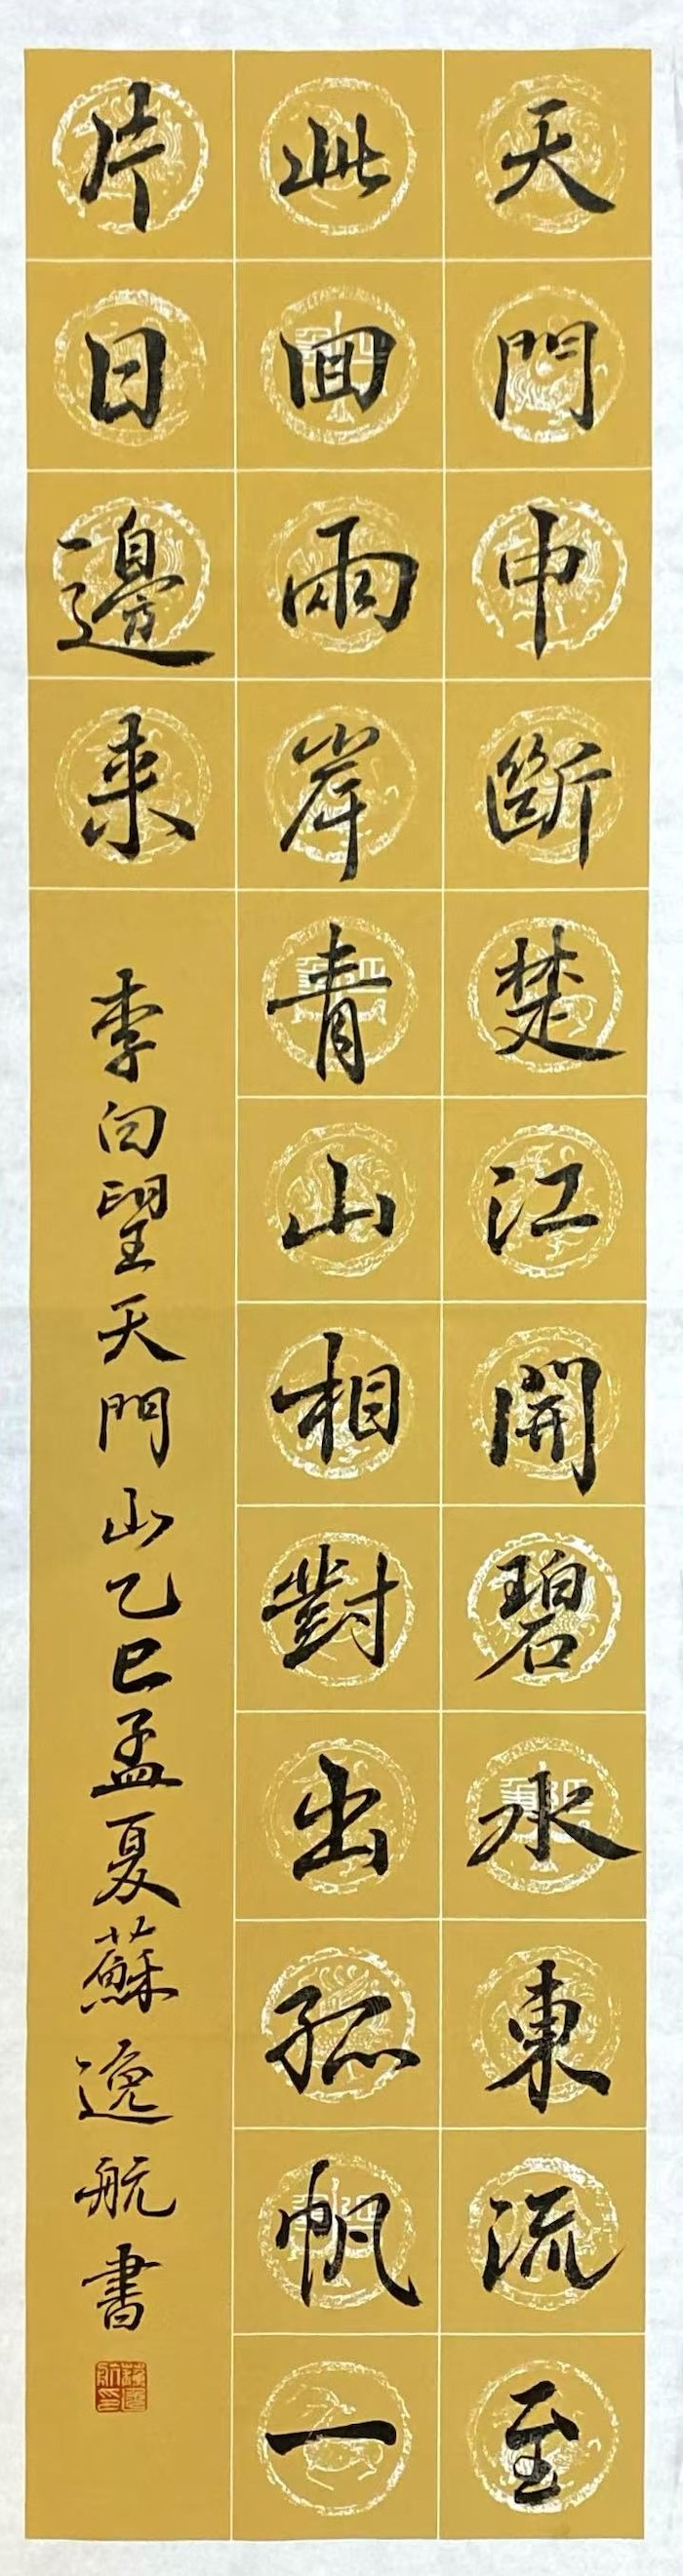 天門中斷楚江開碧水東流至
此回兩岸青山相對出孤帆一
片日邊来
李白望天門山乙巳孟夏蘇逸航書